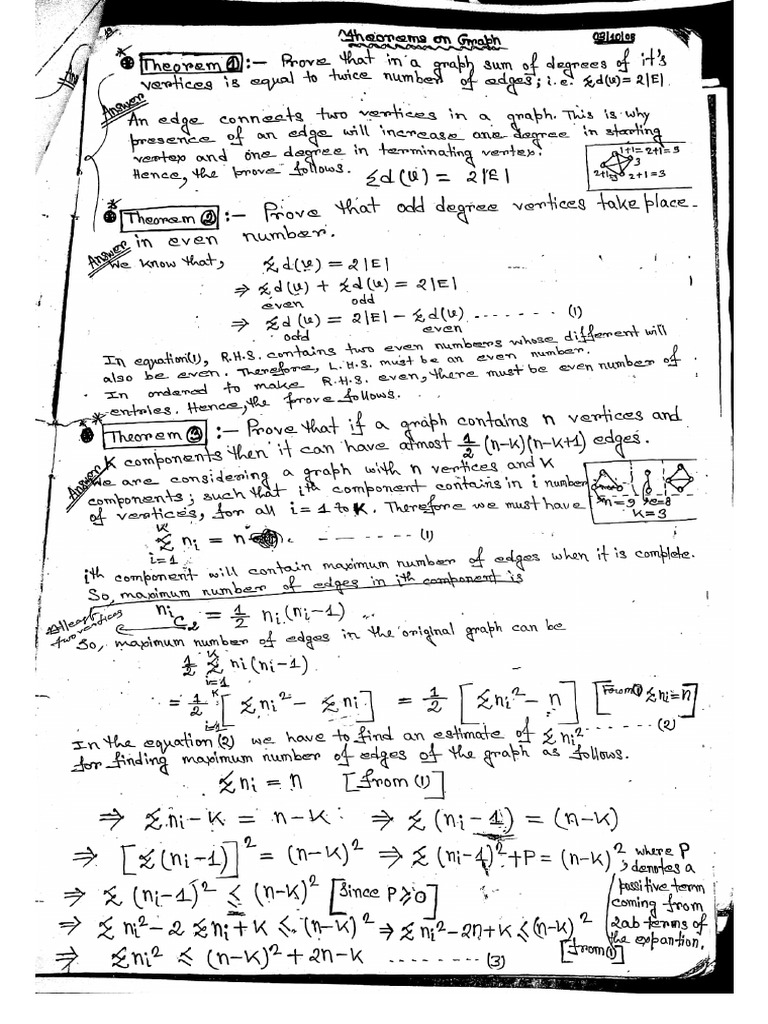 Theorems on Graph 03/10/08
Theorem ① :– Prove that in a graph sum of degrees of it's
vertices is equal to twice number of edges; i.e. Σd(v) = 2|E|
Answer
An edge connects two vertices in a graph. This is why
presence of an edge will increase one degree in starting
vertex and one degree in terminating vertex.
Hence, the prove follows. Σd(v) = 2|E|
1+1=2+1=3
3
2+1=3 2+1=3
Theorem ② :– Prove that odd degree vertices take place
in even number.
Answer
We know that, Σd(v) = 2|E|
⇒ Σd(v) + Σd(v) = 2|E|
even odd
⇒ Σd(v) = 2|E| – Σd(v) ------- (1)
odd even
In equation(1), R.H.S. contains two even numbers whose different will
also be even. Therefore, L.H.S. must be an even number.
In ordered to make R.H.S. even, there must be even number of
entries. Hence, the prove follows.
Theorem ③ :– Prove that if a graph contains n vertices and
K components then it can have atmost 1/2 (n-k)(n-k+1) edges.
Answer
We are considering a graph with n vertices and K
components; such that ith component contains in i number
of vertices, for all i = 1 to K. Therefore we must have
n=9 e=8
K=3
K
Σ ni = n ------- (1)
i=1
ith component will contain maximum number of edges when it is complete.
So, maximum number of edges in ith component is
Atleast two vertices
ni C2 = 1/2 ni (ni-1)
So, maximum number of edges in the original graph can be
1/2 K Σ i=1 ni(ni-1)
= 1/2 K i=1 [Σni² – Σni] = 1/2 [Σni² – n] [From ① Σni=n]
------- (2)
In the equation (2) we have to find an estimate of Σni²
for finding maximum number of edges of the graph as follows.
Σni = n [from (1)]
⇒ Σni – K = n-K ⇒ Σ(ni-1) = (n-K)
⇒ [Σ(ni-1)]² = (n-K)² ⇒ Σ(ni-1)² + P = (n-K)²
where P
; denotes a
possitive term
coming from
2ab terms of
the expantion.
⇒ Σ(ni-1)² ≤ (n-K)² [Since P ≥ 0]
⇒ Σni² – 2Σni + K ≤ (n-K)² ⇒ Σni² – 2n + K ≤ (n-K)²
[from ①]
⇒ Σni² ≤ (n-K)² + 2n-K ------- (3)